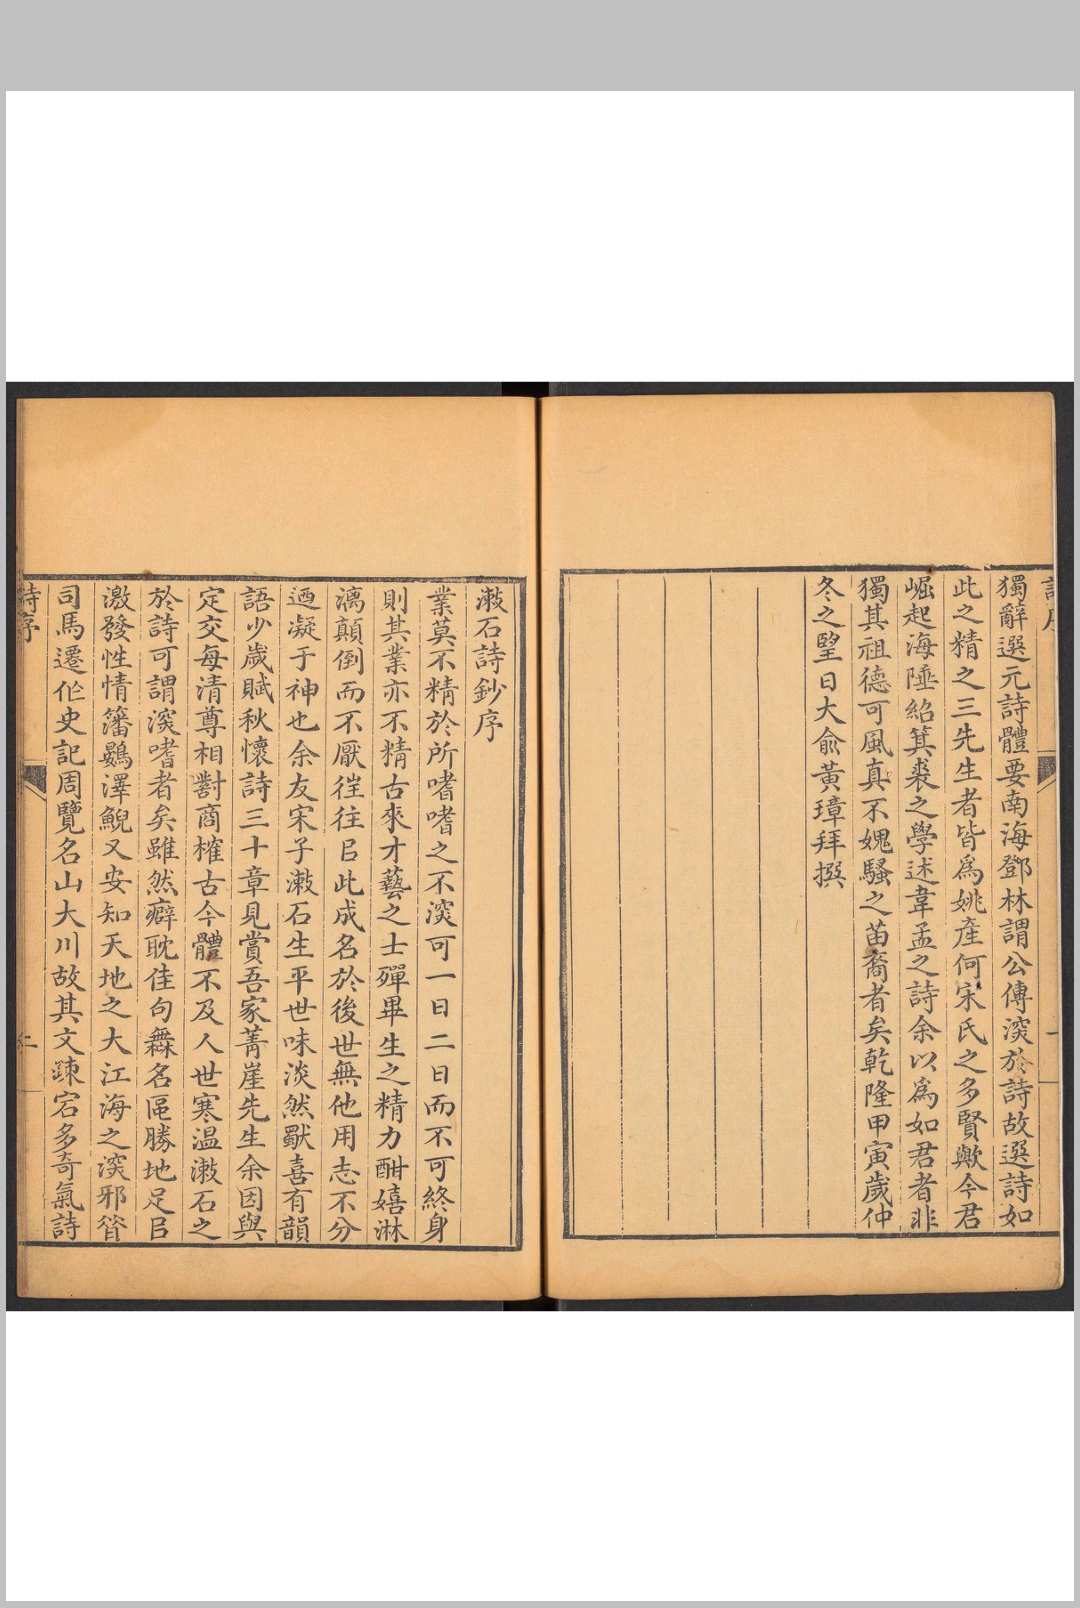 獨辭選元詩體要南海鄧林謂公傳㴱於詩故選詩如
此之精之三先生者皆爲姚產何宋氏之多賢歟今君
崛起海陲紹箕裘之學述韋孟之詩余以爲如君者非
獨其祖德可風真不媿騷之苗裔者矣乾隆甲寅歲仲
冬之朢日大俞黃璋拜撰
一
漱石詩鈔序
業莫不精於所嗜嗜之不㴱可一日二日而不可終身
則其業亦不精古來才藝之士殫畢生之精力酣嬉淋
漓顛倒而不厭徃往㠯此成名於後世無他用志不分
迺凝于神也余友宋子漱石生平世味淡然獸喜有韻
語少歲賦秋懷詩三十章見賞吾家菁崖先生余因與
定交每清尊相對商榷古今體不及人世寒温漱石之
於詩可謂㴱嗜者矣雖然癖耽佳句霦名區勝地足㠯
激發性情籓鷃澤鯢又安知天地之大江海之㴱邪昝
司馬遷作史記周覽名山大川故其文踈宕多奇氣詩
詩序
二